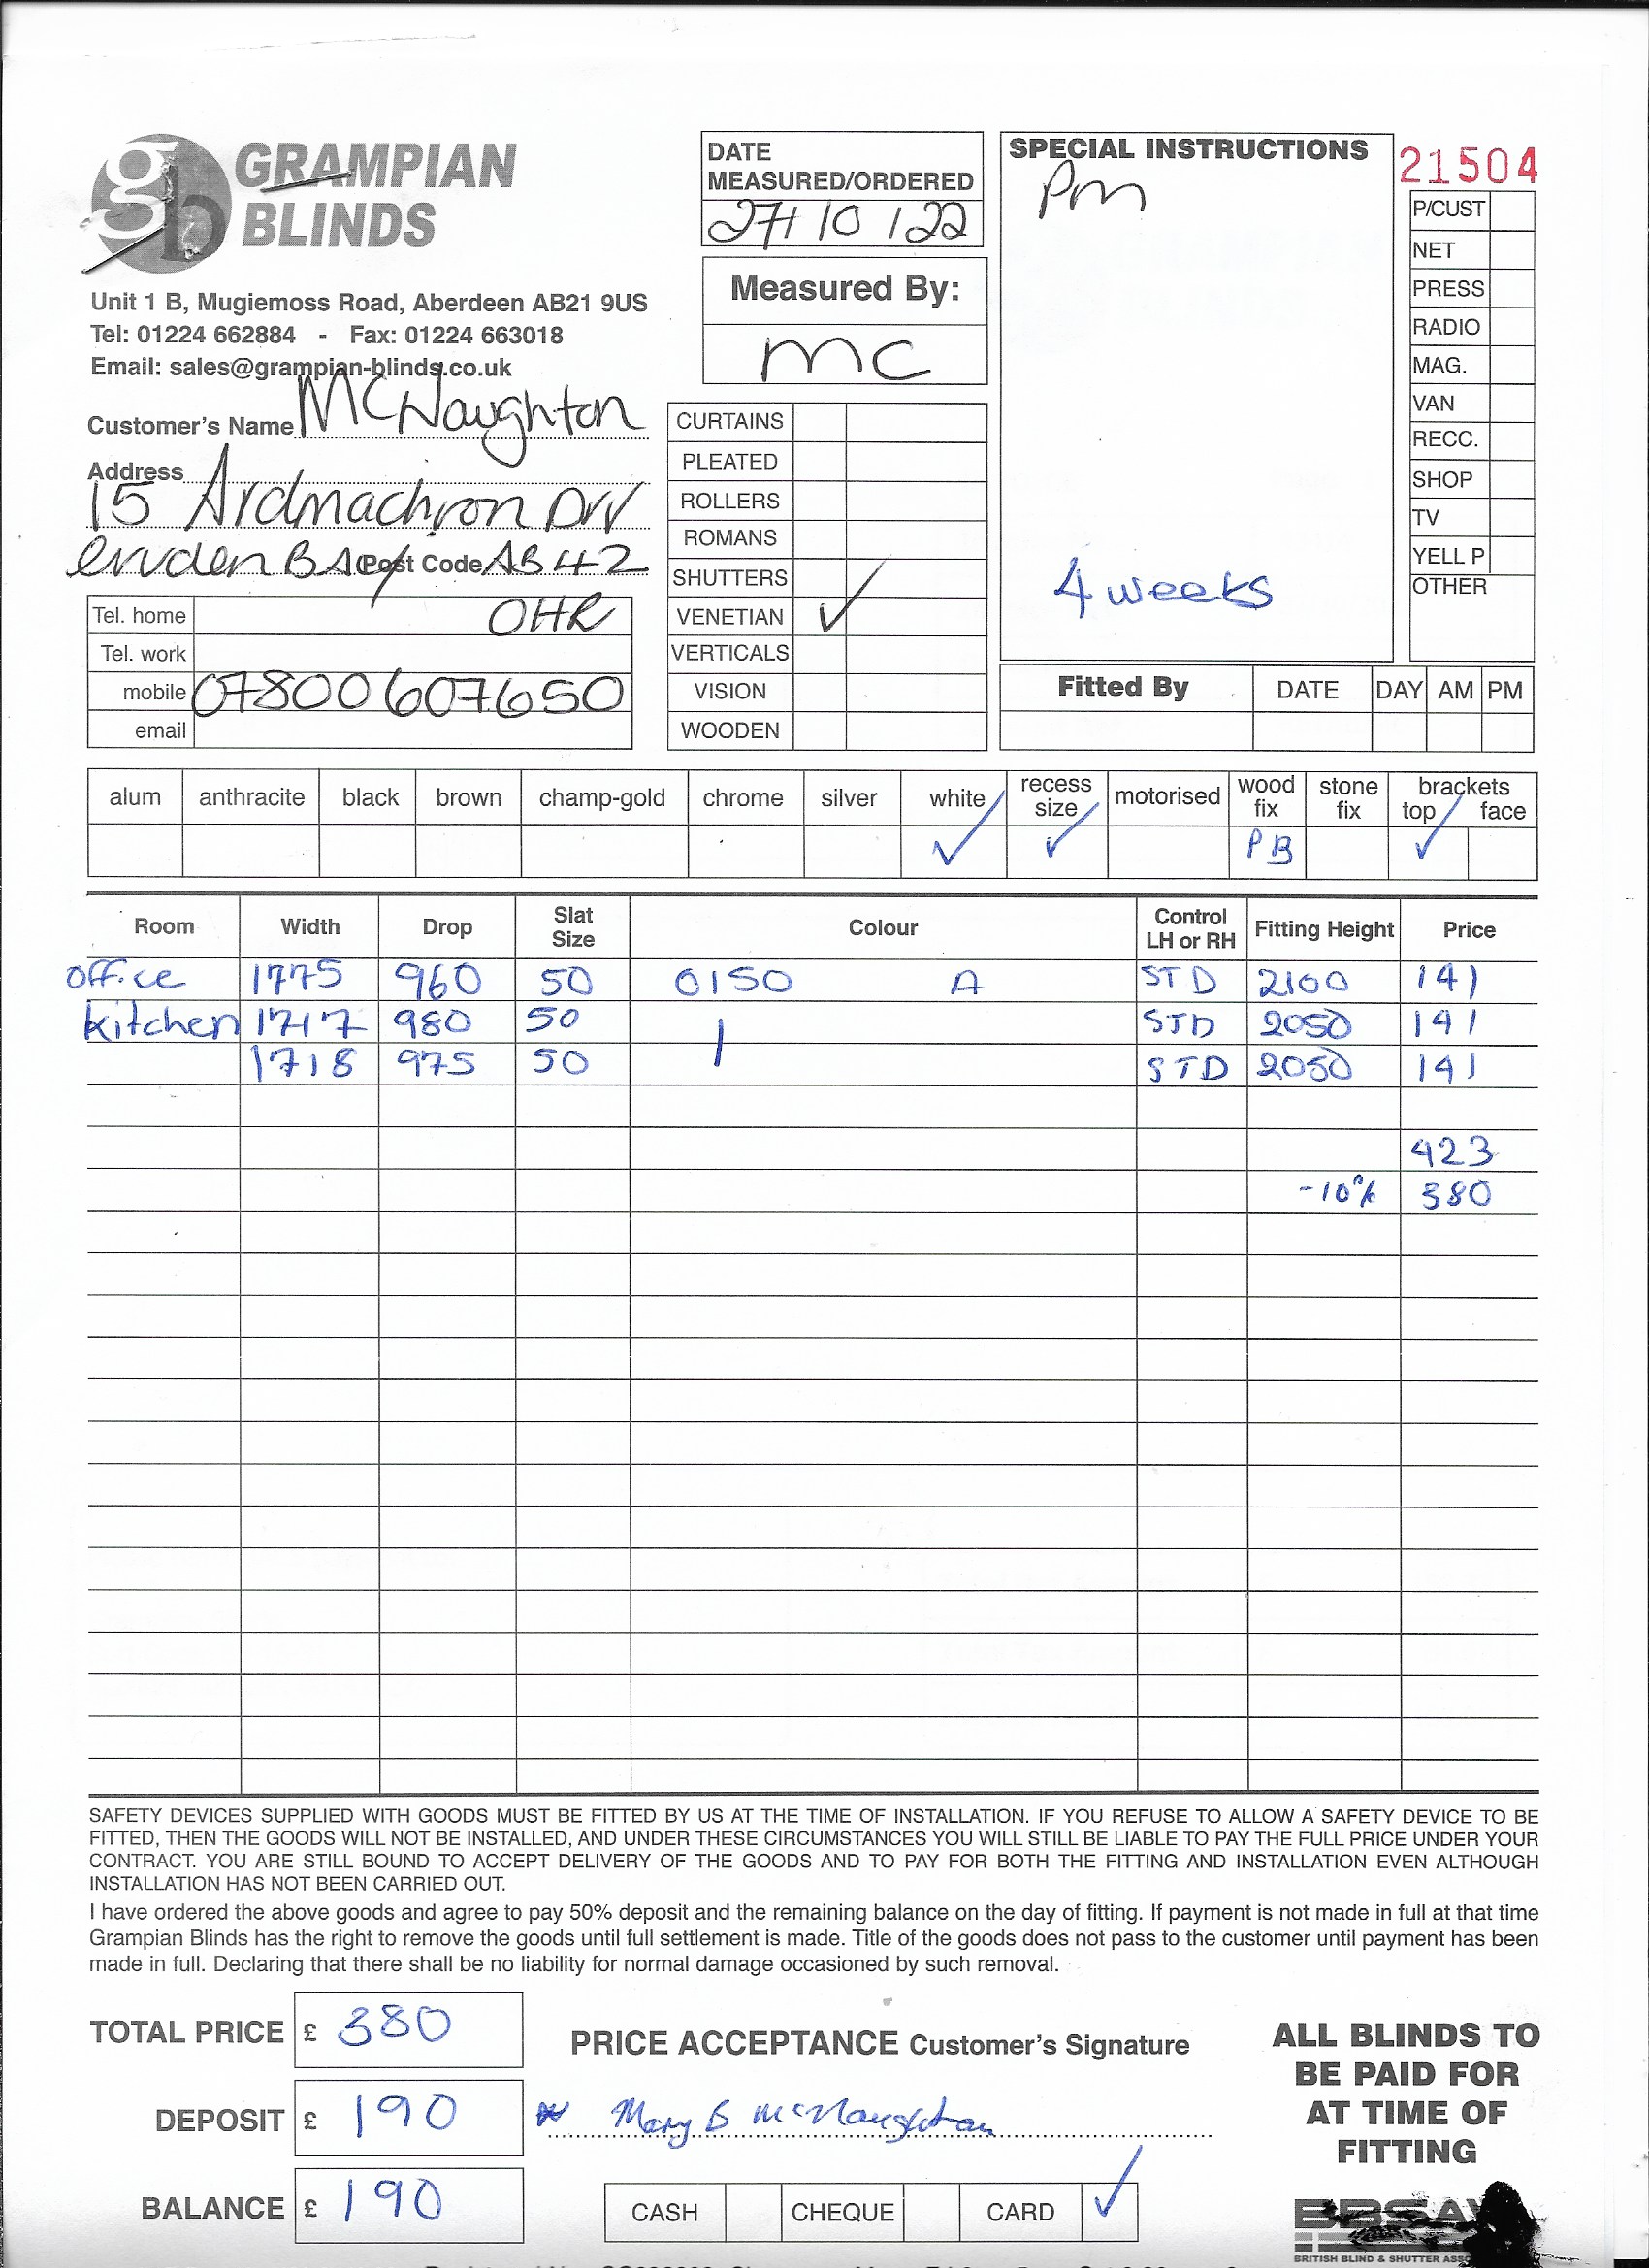 GRAMPIAN
BLINDS
Unit 1 B, Mugiemoss Road, Aberdeen AB21 9US
Tel: 01224 662884 - Fax: 01224 663018
Email: sales@grampian-blinds.co.uk
Customer's Name McNaughton
Address
15 Ardmachron Drv
Cruden BAy Post Code AB42
Tel. home OHR
Tel. work
mobile 07800607650
email
DATE
MEASURED/ORDERED
27/10/22
Measured By:
MC
CURTAINS
PLEATED
ROLLERS
ROMANS
SHUTTERS
VENETIAN ✓
VERTICALS
VISION
WOODEN
SPECIAL INSTRUCTIONS
Pm
4 weeks
21504
P/CUST
NET
PRESS
RADIO
MAG.
VAN
RECC.
SHOP
TV
YELL P
OTHER
Fitted By DATE DAY AM PM
alum anthracite black brown champ-gold chrome silver white recess size motorised wood fix stone fix brackets top face
✓ ✓ PB ✓
Room Width Drop Slat Size Colour Control LH or RH Fitting Height Price
office 1775 960 50 0150 A STD 2100 141
kitchen 1717 980 50 STD 2050 141
1718 975 50 STD 2050 141
423
-10% 380
SAFETY DEVICES SUPPLIED WITH GOODS MUST BE FITTED BY US AT THE TIME OF INSTALLATION. IF YOU REFUSE TO ALLOW A SAFETY DEVICE TO BE
FITTED, THEN THE GOODS WILL NOT BE INSTALLED, AND UNDER THESE CIRCUMSTANCES YOU WILL STILL BE LIABLE TO PAY THE FULL PRICE UNDER YOUR
CONTRACT. YOU ARE STILL BOUND TO ACCEPT DELIVERY OF THE GOODS AND TO PAY FOR BOTH THE FITTING AND INSTALLATION EVEN ALTHOUGH
INSTALLATION HAS NOT BEEN CARRIED OUT.
I have ordered the above goods and agree to pay 50% deposit and the remaining balance on the day of fitting. If payment is not made in full at that time
Grampian Blinds has the right to remove the goods until full settlement is made. Title of the goods does not pass to the customer until payment has been
made in full. Declaring that there shall be no liability for normal damage occasioned by such removal.
TOTAL PRICE £ 380
PRICE ACCEPTANCE Customer's Signature
DEPOSIT £ 190
Mary B McNaughton
BALANCE £ 190
CASH CHEQUE CARD ✓
ALL BLINDS TO
BE PAID FOR
AT TIME OF
FITTING
BRITISH BLIND & SHUTTER